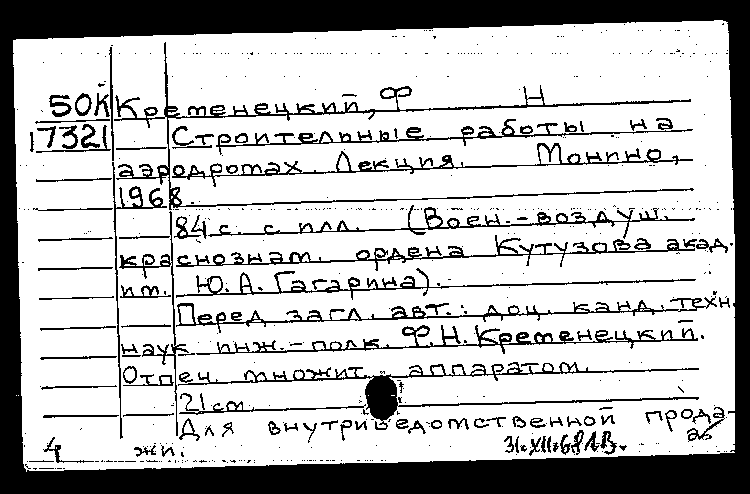 50К Кременецкий, Ф Н
17321 Строительные работы на
аэродромах. Лекция. Монино,
1968.
84 с. с илл. (Воен.-воздуш.
краснознам. ордена Кутузова акад.
им. Ю. А. Гагарина).
Перед загл. авт.: доц. канд. техн.
наук инж.-полк. Ф. Н. Кременецкий.
Отпеч. множит. аппаратом.
21 см.
Для внутриведомственной прода-
4 жи. 31.XII.68